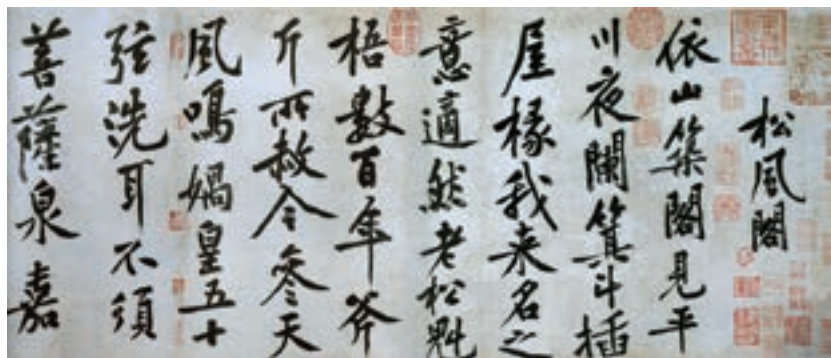 松風閣
依山築閣見平
川夜闌箕斗插
屋椽我来名之
意適然老松魁
梧數百年斧
斤所赦令參天
風鳴媧皇五十
弦洗耳不須
菩薩泉嘉